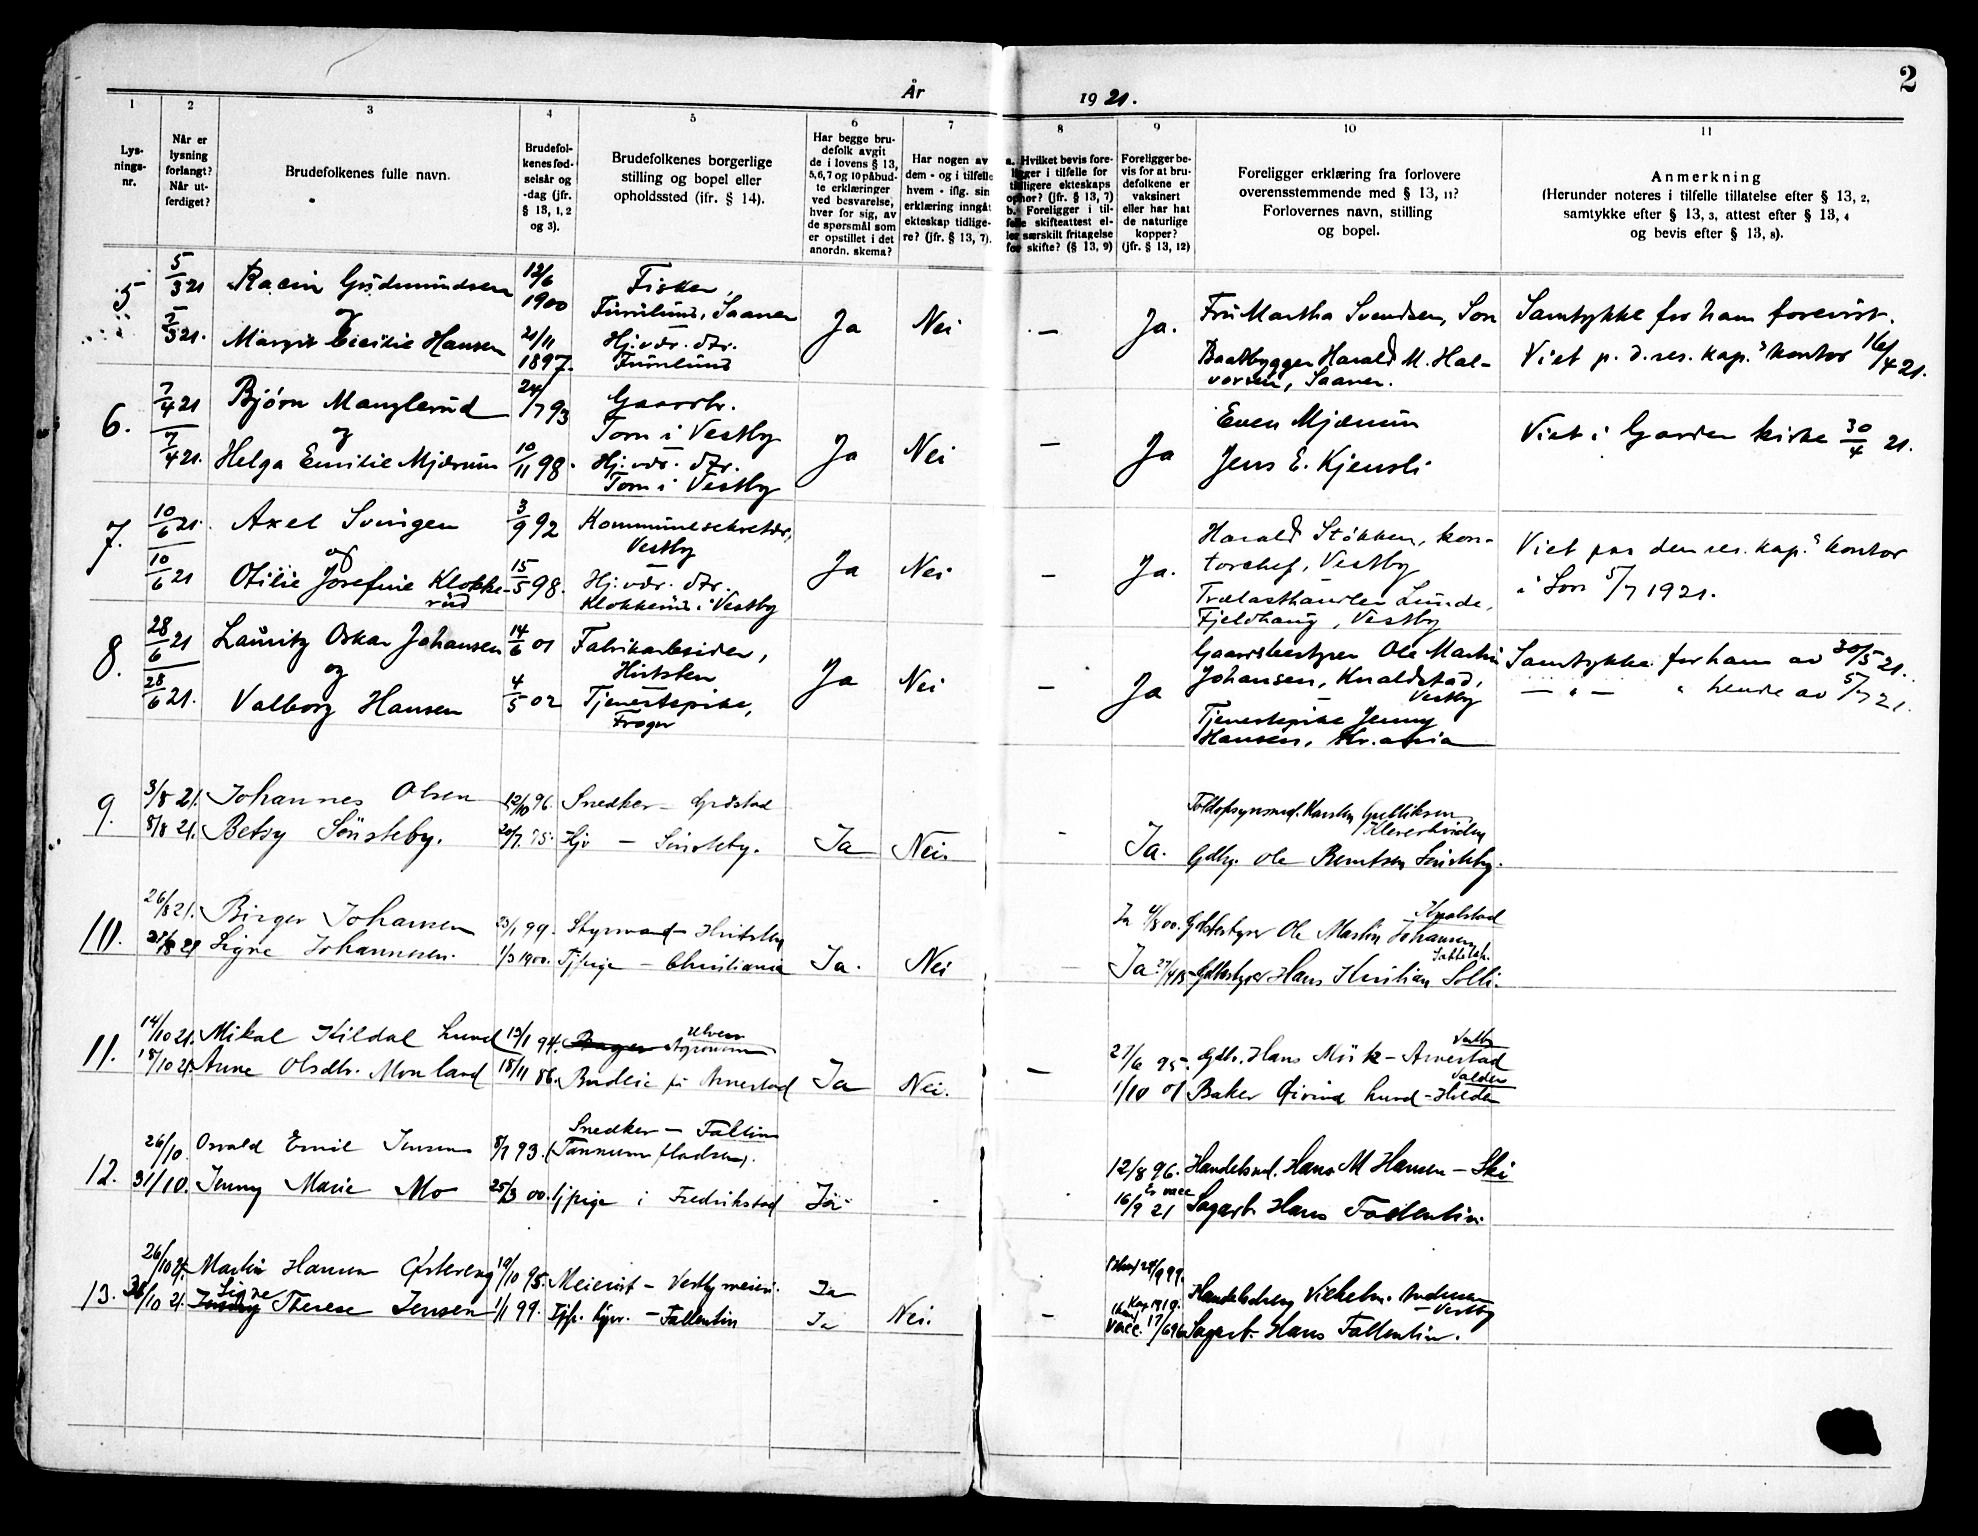 År 1921.
2
1
2
3
4
5
6
7
8
9
10
11
Lys-
nings-
nr.
Når er
lysning
forlangt?
Når ut-
ferdiget?
Brudefolkenes fulle navn.
Brudefol-
kenes fød-
selsår og
-dag (jfr.
§ 13, 1, 2
og 3).
Brudefolkenes borgerlige
stilling og bopel eller
opholdssted (jfr. § 14).
Har begge bru-
defolk avgit
de i lovens § 13,
5, 6, 7 og 10 påbud-
te erklæringer
ved besvarelse,
hver for sig, av
de spørsmål som
er opstillet i det
anordn. skema?
Har nogen av
dem - og i tilfelle
hvem - iflg. sin
erklæring inngåt
ekteskap tidlige-
re? (jfr. § 13, 7).
a. Hvilket bevis fore-
ligger i tilfelle for
tidligere ekteskaps
ophør? (jfr. § 13, 7)
b. Foreligger i til-
felle skifteattest el-
ler særskilt fritagelse
for skifte? (§ 13, 9)
Foreligger be-
vis for at bru-
defolkene er
vaksinert
eller har hat
de naturlige
kopper?
(jfr. § 13, 12)
Foreligger erklæring fra forlovere
overensstemmende med § 13, 11?
Forlovernes navn, stilling
og bopel.
Anmerkning
(Herunder noteres i tilfelle tillatelse efter § 13, 2,
samtykke efter § 13, 3, attest efter § 13, 4
og bevis efter § 13, 8).
5
5/3 21
Gudmundsen
og
5/3 21.
Margit Cecilie Hansen
12/6
1900
21/11
1897.
Fisker,
Furulund, Saaner
Hj. vær. dtr.
Furulund
Ja
Nei
—
Ja.
Fru Martha Svendsen, Son
Baatbygger Harald M. Hal-
vorsen, Saaner.
Samtykke for ham forevist.
Viet p. d. res. kap.s kontor 16/4 21.
6.
7/4 21
Bjørn Manglerud
og
7/4 21.
Helga Emilie Mjærum
24/7 93
10/11 98.
Gaardbr.
Torn i Vestby
Hj. vær. dtr.
Torn i Vestby
Ja
Nei
—
Ja
Even Mjærum
Jens E. Kjensli
Viet i Garder kirke 30/4 21.
7.
10/6 21.
Axel Svingen
og
10/6 21
Otilie Josefine Klokke-
rud
3/9 92
15/5 98.
Kommunesekretær,
Vestby
Hj. vær. dtr.
Klokkerud i Vestby
Ja
Nei
—
Ja.
Harald Støkken, kon-
torchef, Vestby
Trælasthandler Lunde,
Fjeldhaug, Vestby
Viet paa den res. kap.s kontor
i Son 5/7 1921.
8.
28/6 21
Lauritz Oskar Johansen
og
28/6 21.
Valborg Hansen
14/6 01
4/5 02
Fabrikarbeider,
Hvitsten
Tjenestepike,
Frogn
Ja
Nei
—
Ja
Gaardsbestyrer Ole Martin
Johansen, Knaldstad,
Vestby
Tjenestepike Jenny
Hansen, Kr.ania
Samtykke for ham av 30/5 21.
— " — " hende av 5/7 21.
9.
3/8 21.
Johannes Olsen
8/8 21.
Betsy Sønsteby.
12/10 96.
20/7. 75.
Snedker —
Hjv — Sønsteby.
Ja
Nei.
-
Ja.
Toldopsynsmd. Karsten Gulliksen
Gdbr. Ole Berntsen Sønsteby.
10.
26/8 21.
Birger Johansen
27/8 21
Signe Johannesen.
23/1 99.
1/3 1900.
Styrmand — Hvitsten
Tjpige — Christiania
Ja.
Nei
—
Ja 4/8 00.
Ja 27/4
Knalstad
Gdbestyrer Ole Martin Johansen
Gdbestyrer Hans Kristian Solli.
11.
14/10 21.
Mikal Kildal Lund
18/10 21.
Anne Olsdtr. Morland
13/1 94.
18/11 86.
Agronom
Budeie på Arnestad
Ja
Nei.
—
27/6 95.
1/10 01
Vestby
Gdbr. Hans Mørk — Arnestad
Baker Øivind Lund — Holden
12.
26/10.
Osvald Emil Jensen
31/10.
Jenny Marie Mo
8/7 93.
25/3 00.
Snedker — Fallin
tjpige i Fredrikstad
Ja
-
12/8 96.
16/9 21
Handelsmd. Hans M Hansen — Ski
Sagarb. Hans Follentin.
13.
26/10 21.
Martin Hansen Østereng
31/10 21.
Signe
Therese Jensen
19/10 95.
1/1 99.
Meierist — Vestby meieri.
— Follentin
Ja
Ja
Nei.
—
Vacc. 17/6 96
Handelsbest. Vilhelm Andersen
— Vestby
Sagarb. Hans Follentin.